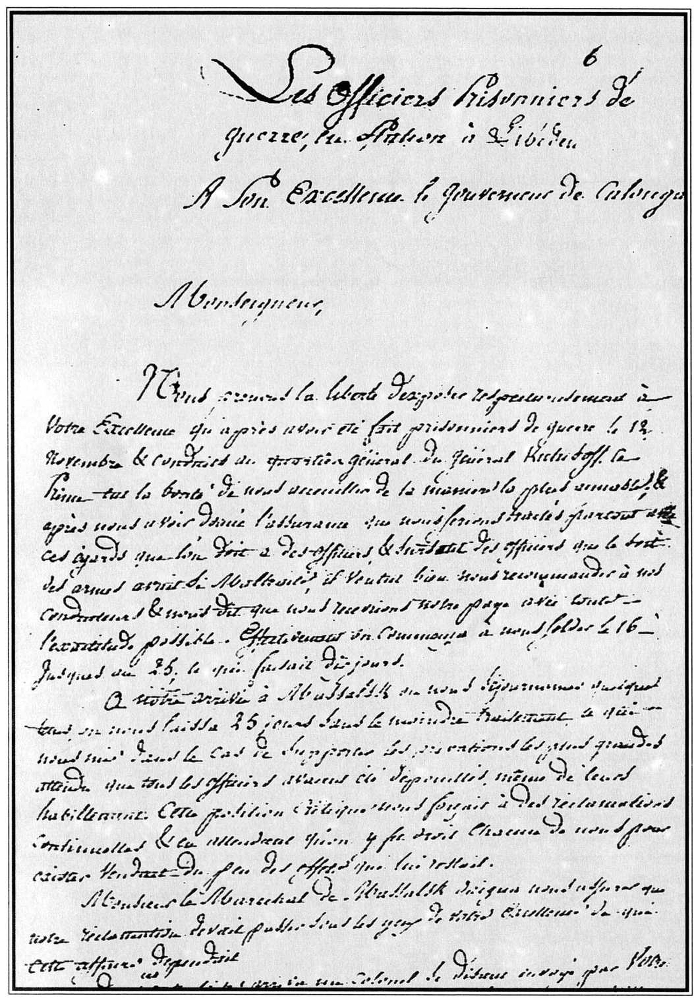 6
Les Officiers Prisonniers de
guerre, en Station à
A Son Excellence le Gouverneur de Calouga
Monseigneur,
Nous prenons la liberté d'exposer respectueusement à
Votre Excellence qu'après avoir été fait prisonniers de guerre le 12
novembre & conduits au quartier général du Général Kutusoff, ce
Prince eut la bonté de nous accueillir de la manière la plus aimable, &
après nous avoir donné l'assurance que nous serions traités partout avec
ces égards que l'on doit à des officiers, & surtout des officiers que le sort
des armes avait si Maltraité, il voulut bien nous recommander à nos
conducteurs & nous dit que nous recevrions notre paye avec toute
l'exactitude possible. Effectivement on commença à nous solder le 16
jusques au 25, ce qui faisait dix jours.
A notre arrivée à Massalsk où nous séjournames quelque
tems, on nous laissa 25 jours sans le moindre traitement, ce qui
nous mit dans le cas de supporter les privations les plus grandes
attendu que tous les officiers avaient été dépouillés, même de leurs
habillemens. Cette position critique nous forçait à des réclamations
continuelles & en attendant qu'on y fit droit chacun de nous pour
exister vendait du peu des effets qui lui restoit.
Monsieur le Maréchal de Massalsk nous assura que
notre réclamation devait passer sous les yeux de Votre Excellence de qui
cette affaire dépendait
un Colonel envoyé par Votre